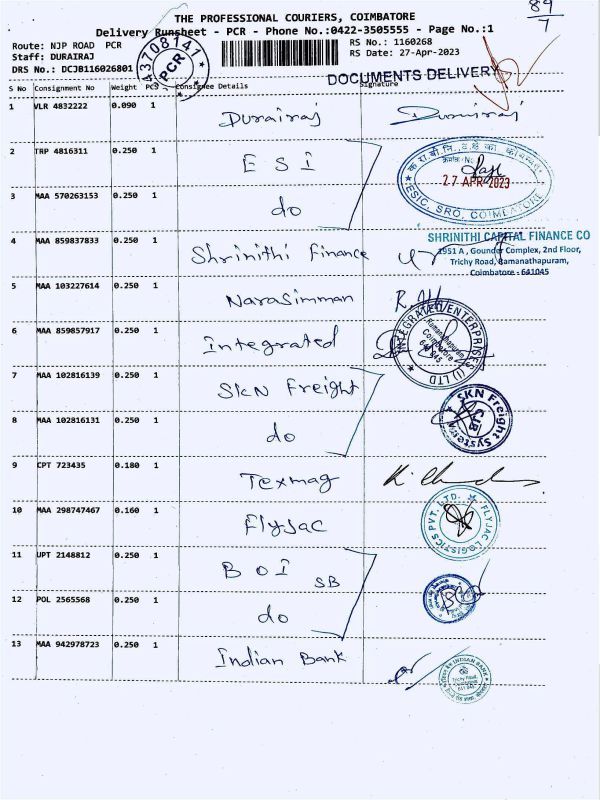 84
7
THE PROFESSIONAL COURIERS, COIMBATORE
Delivery Runsheet - PCR - Phone No.:0422-3505555 - Page No.:1
Route: NJP ROAD PCR
RS No.: 1160268
Staff: DURAIRAJ
RS Date: 27-Apr-2023
DRS No.: DCJB116026801
43708141
PCR
DOCUMENTS DELIVERY
S No Consignment No Weight PCS Consignee Details Signature
1 VLR 4832222 0.090 1 Durairaj Durairaj
2 TRP 4816311 0.250 1 ESI
क्रमांक No
27 APR 2023
ESIC, SRO, COIMBATORE
3 MAA 570263153 0.250 1 do
4 MAA 859837833 0.250 1 Shrinithi Finance
SHRINITHI CAPITAL FINANCE CO
1951 A, Gounder Complex, 2nd Floor,
Trichy Road, Ramanathapuram,
Coimbatore - 641045
5 MAA 103227614 0.250 1 Narasimman
6 MAA 859857917 0.250 1 Integrated
INTEGRATED ENTERPRISES (I) LTD
Ramanathapuram
Coimbatore
641 045
7 MAA 102816139 0.250 1 SKN Freight
8 MAA 102816131 0.250 1 do
SKN Freight Systems
CJB
9 CPT 723435 0.180 1 Texmag
10 MAA 298747467 0.160 1 Flyjac
FLYJAC LOGISTICS PVT. LTD.
11 UPT 2148812 0.250 1 BOI SB
12 POL 2565568 0.250 1 do
13 MAA 942978723 0.250 1 Indian Bank
INDIAN BANK
Trichy Road